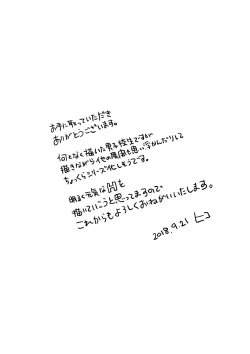 お手に取っていただき
ありがとうございます。
何となく描いた男子校生ですが
描きながら他の風景も思い浮かんだりして
ちょっくらシリーズ化しそうです。
明るく元気な
描いていこうと思ってますので、
これからもよろしくおねがいいたします。
2018.9.21 ヒコ